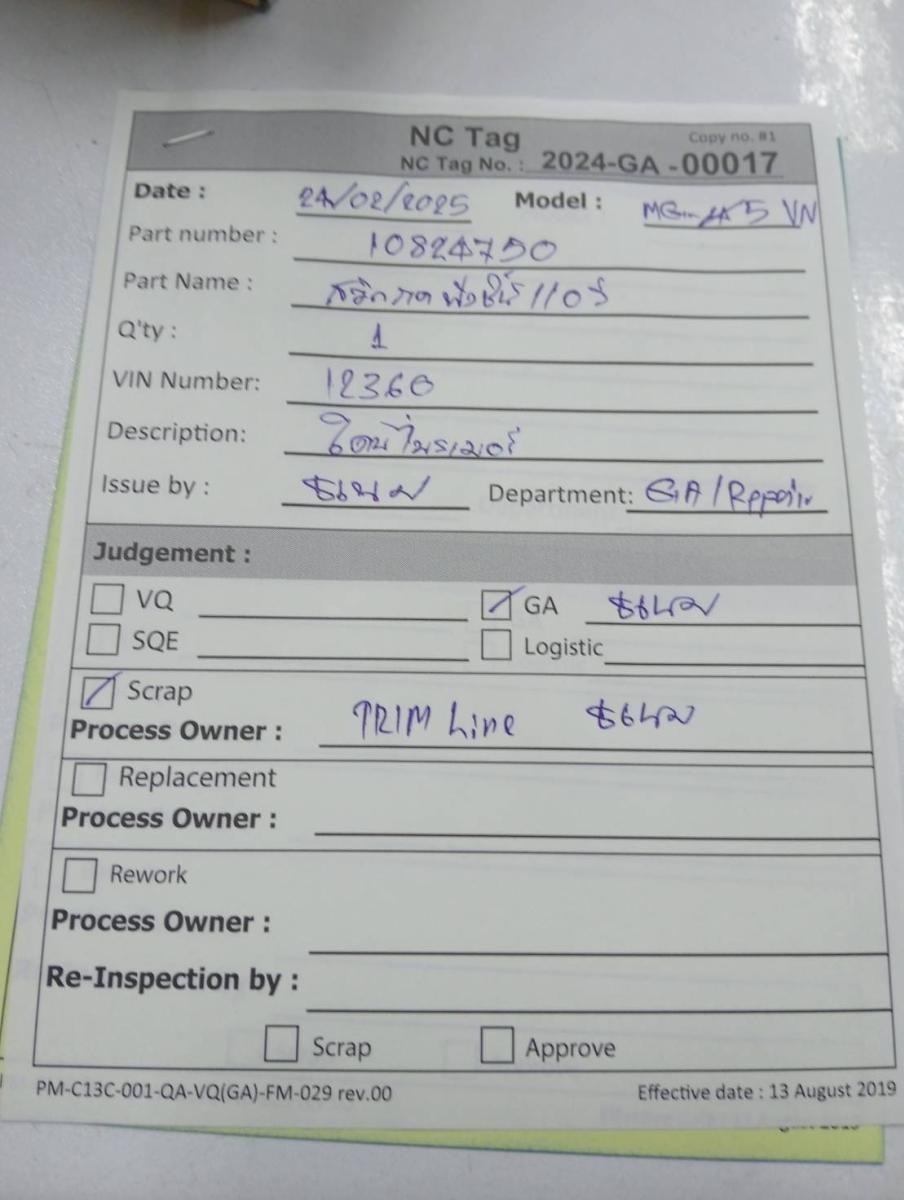 NC Tag
Copy no. #1
NC Tag No. : 2024-GA -00017
Date : 24/02/2025 Model : MG 5 VN
Part number : 10824750
Part Name :
Q'ty : 1
VIN Number: 12360
Description:
Issue by : Department: GA/Repair
Judgement :
VQ GA
SQE Logistic
Scrap
Process Owner : TRIM Line
Replacement
Process Owner :
Rework
Process Owner :
Re-Inspection by :
Scrap Approve
PM-C13C-001-QA-VQ(GA)-FM-029 rev.00 Effective date : 13 August 2019